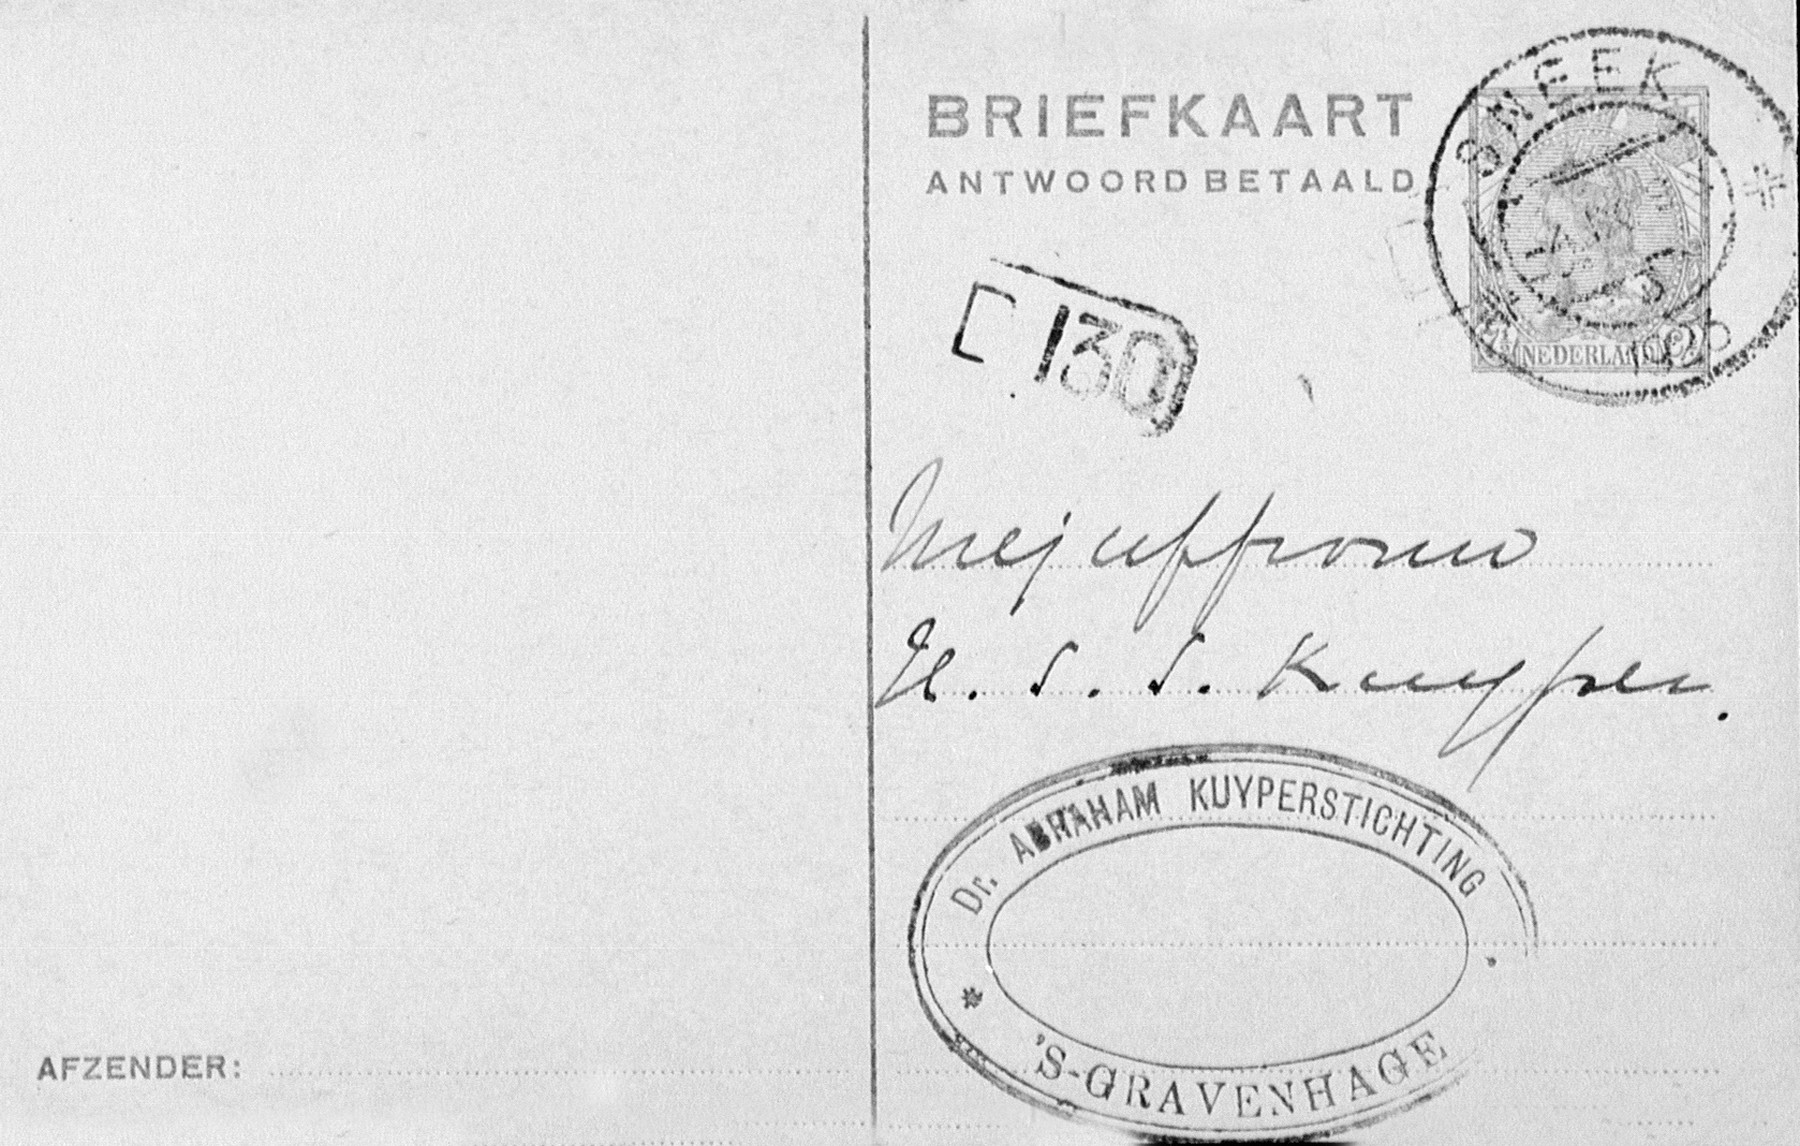 BRIEFKAART
ANTWOORD BETAALD
SNEEK
NEDERLAND
130
Mejuffrouw
H. S. S. Kuyper.
Dr. ABRAHAM KUYPERSTICHTING
'S-GRAVENHAGE
AFZENDER: